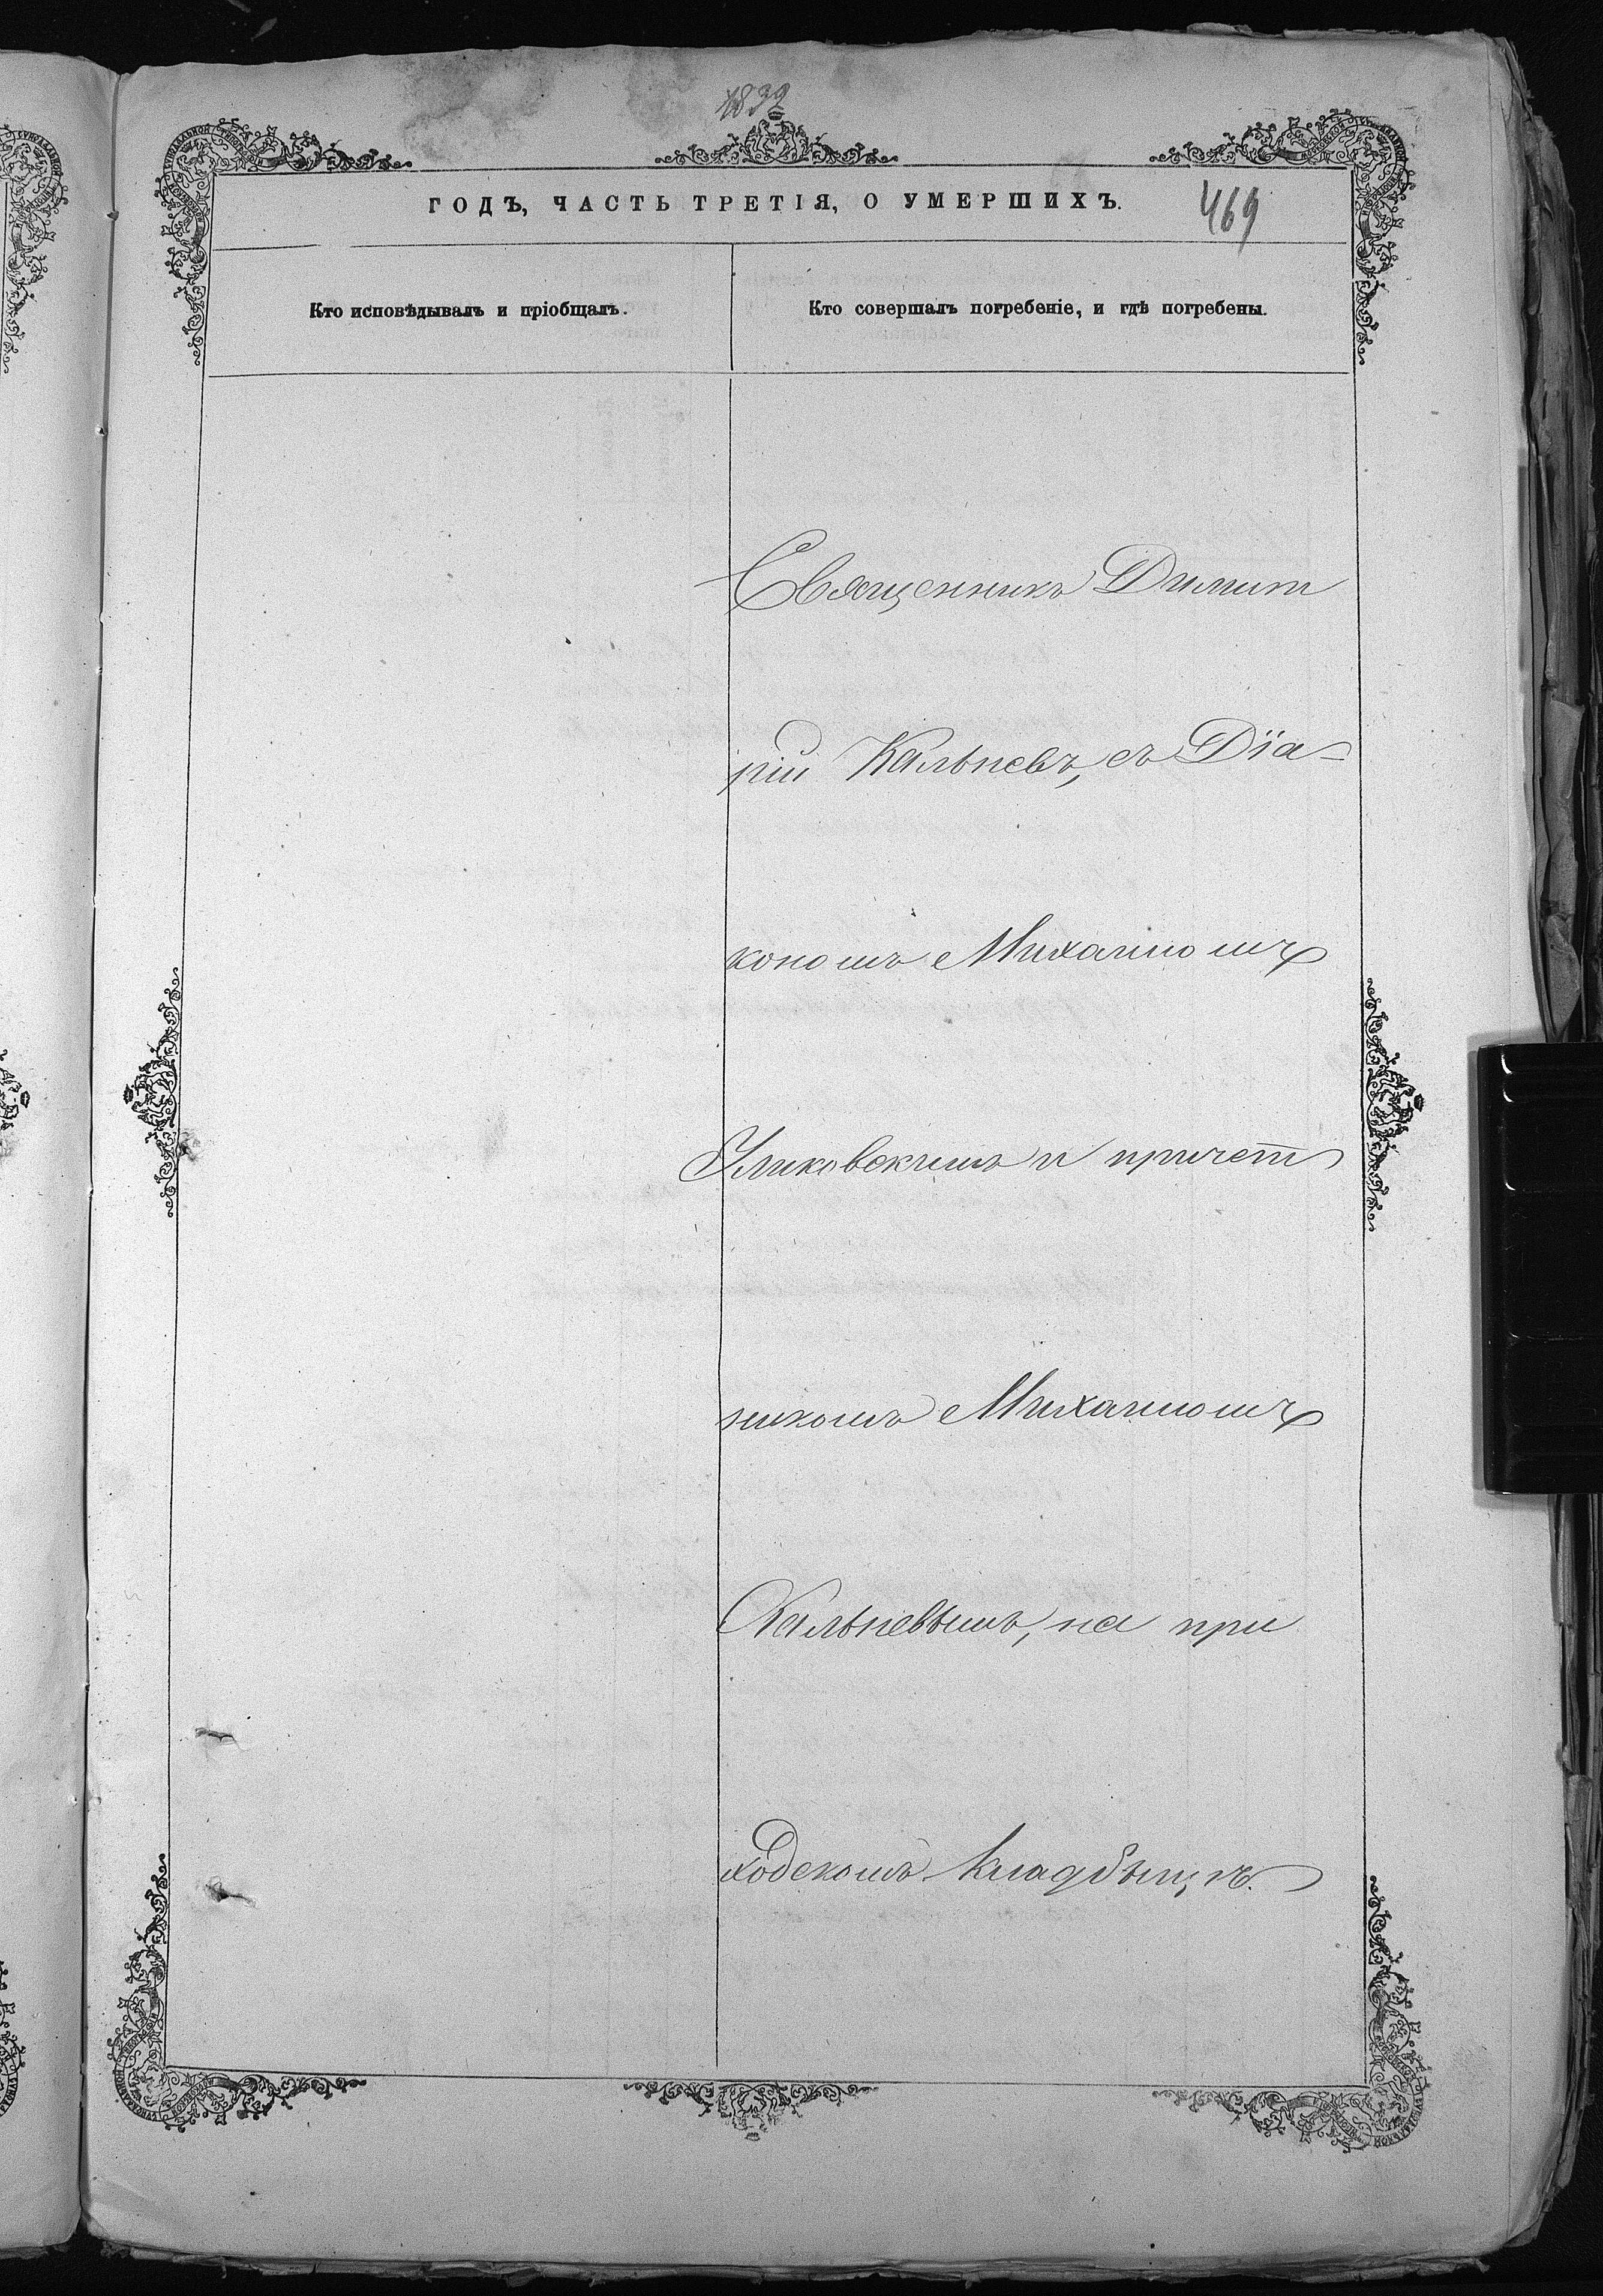 1832
ГОДЪ, ЧАСТЬ ТРЕТІЯ, О УМЕРШИХЪ.
469
Кто исповѣдывалъ и пріобщалъ.
Кто совершалъ погребеніе, и гдѣ погребены.
Священникъ Димит
рій Кальневъ, съ Діа-
кономъ Михаиломъ
и причет
никомъ Михаиломъ
Кальневымъ, на при
ходскомъ кладбыщѣ.